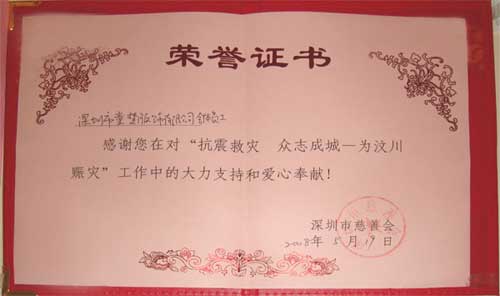 荣誉证书
深圳市童梦服饰有限公司全体员工
感谢您在对“抗震救灾 众志成城—为汶川
赈灾”工作中的大力支持和爱心奉献！
深圳市慈善会
2008年5月19日